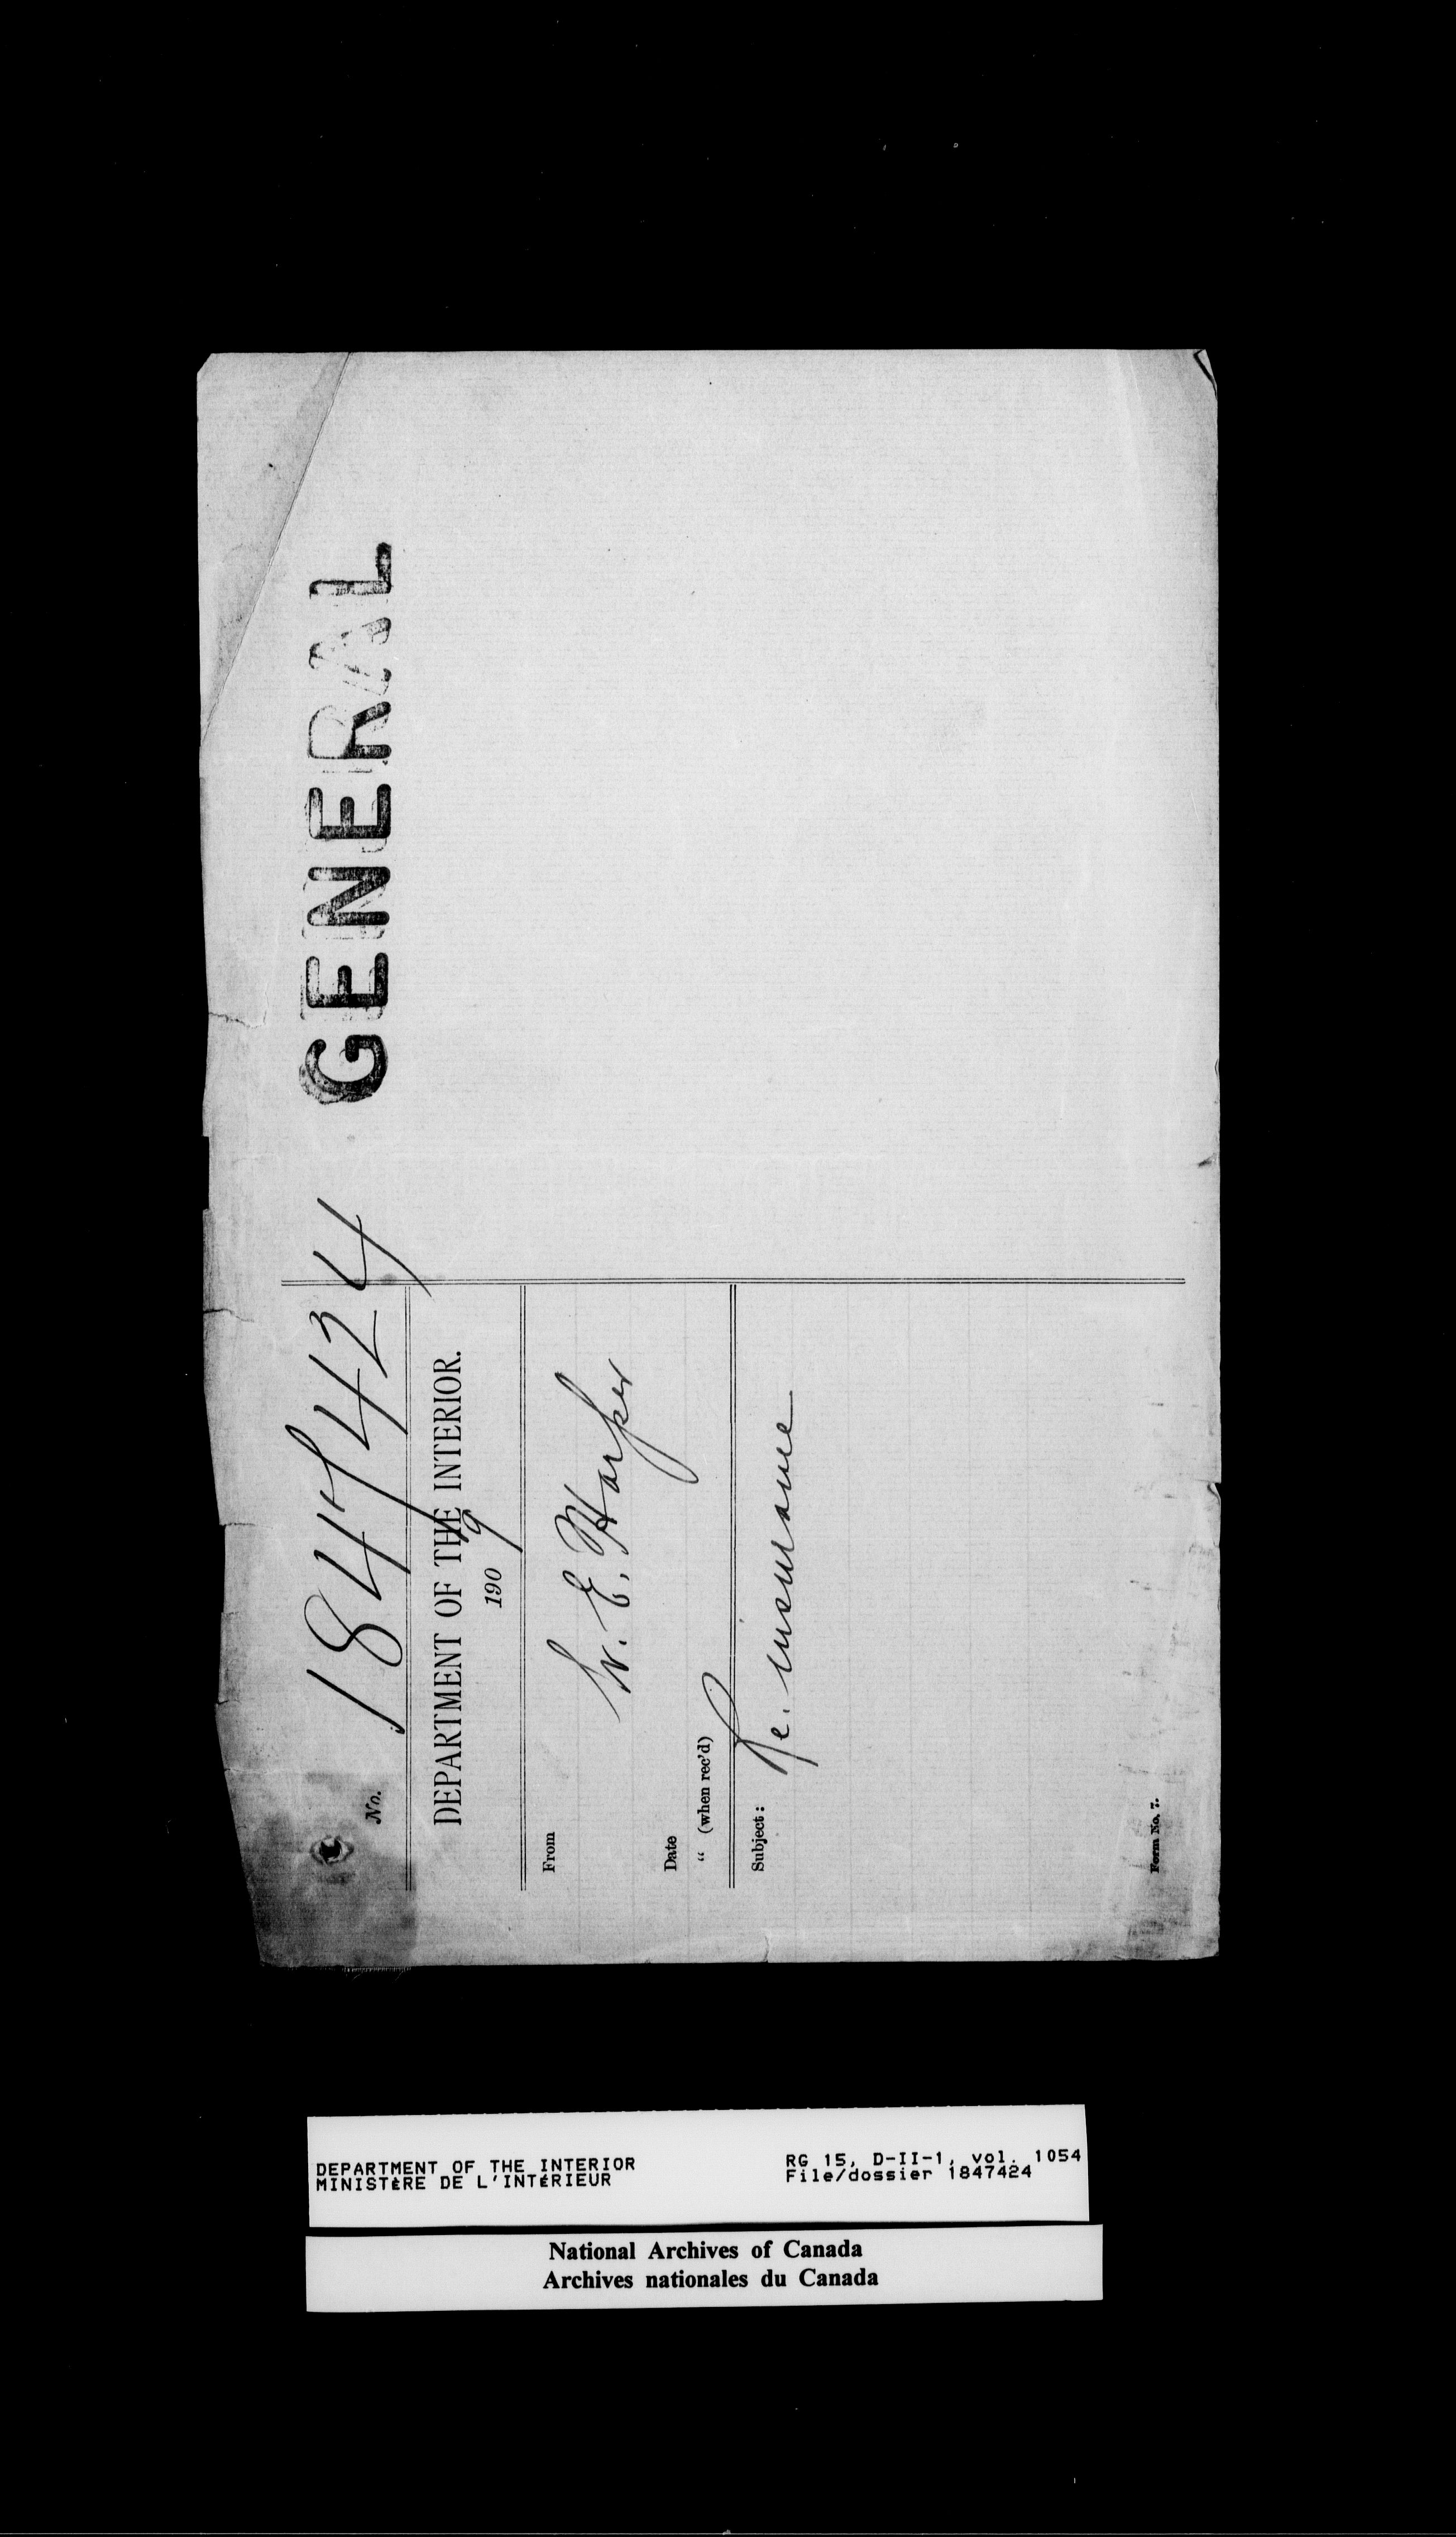 No. 1847424 GENERAL
DEPARTMENT OF THE INTERIOR.
1909
From
W. E. Harper
Date
" (when rec'd)
Subject:
Re. insurance
Form No. 7.
DEPARTMENT OF THE INTERIOR
MINISTÈRE DE L'INTÉRIEUR
RG 15, D-II-1, vol. 1054
File/dossier 1847424
National Archives of Canada
Archives nationales du Canada